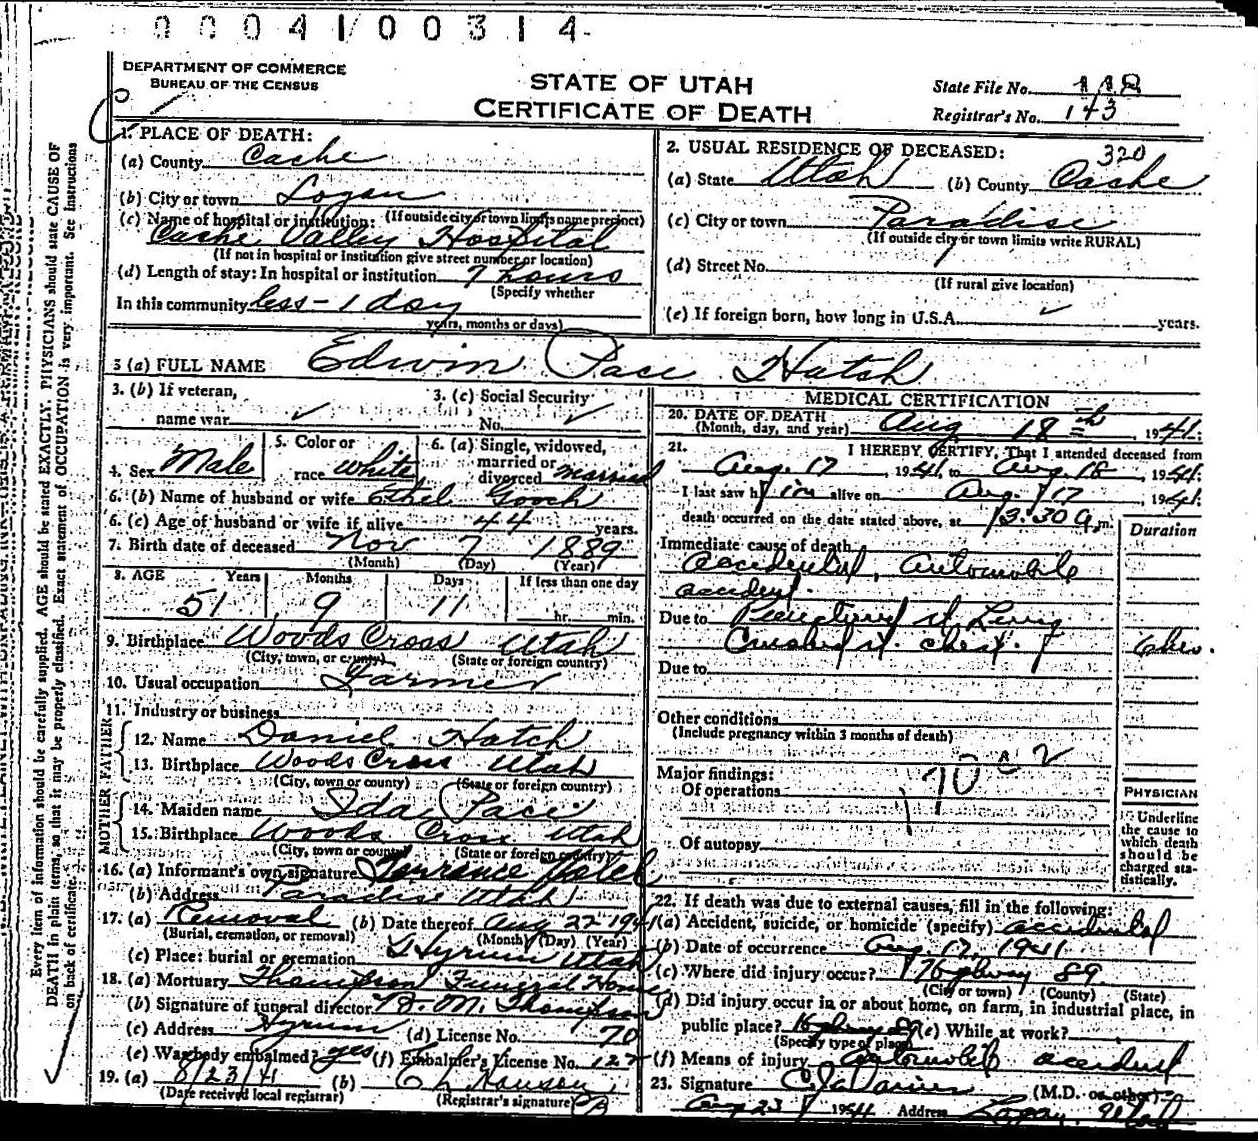 00041/00314
DEPARTMENT OF COMMERCE
BUREAU OF THE CENSUS
STATE OF UTAH
CERTIFICATE OF DEATH
State File No. 118
Registrar's No. 143
Every item of information should be carefully supplied. AGE should be stated EXACTLY. PHYSICIANS should state CAUSE OF
DEATH in plain terms, so that it may be properly classified. Exact statement of OCCUPATION is very important. See Instructions
on back of certificate.
1. PLACE OF DEATH:
(a) County Cache
(b) City or town Logan
(If outside city or town limits name precinct)
(c) Name of hospital or institution:
Cache Valley Hospital
(If not in hospital or institution give street number or location)
(d) Length of stay: In hospital or institution 7 hours
(Specify whether
In this community less - 1 day
years, months or days)
2. USUAL RESIDENCE OF DECEASED: 320
(a) State Utah (b) County Cache
(c) City or town Paradise
(If outside city or town limits write RURAL)
(d) Street No.
(If rural give location)
(e) If foreign born, how long in U.S.A. years.
3 (a) FULL NAME Edwin Pace Hatch
3. (b) If veteran,
name war
3. (c) Social Security
No.
4. Sex Male
5. Color or
race white
6. (a) Single, widowed,
married or
divorced married
6. (b) Name of husband or wife Ethel Gooch
6. (c) Age of husband or wife if alive 44 years.
7. Birth date of deceased Nov 7 1889
(Month) (Day) (Year)
8. AGE Years Months Days If less than one day
51 9 11 hr. min.
9. Birthplace Woods Cross Utah
(City, town, or county) (State or foreign country)
10. Usual occupation Farmer
11. Industry or business
FATHER
12. Name Daniel Hatch
13. Birthplace Woods Cross Utah
(City, town or county) (State or foreign country)
MOTHER
14. Maiden name Ida Pace
15. Birthplace Woods Cross Utah
(City, town or county) (State or foreign country)
16. (a) Informant's own signature Torrance Hatch
(b) Address Paradise Utah
17. (a) Removal (b) Date thereof Aug 22 1941
(Burial, cremation, or removal) (Month) (Day) (Year)
(c) Place: burial or cremation Hyrum Utah
18. (a) Mortuary Thompson Funeral Home
(b) Signature of funeral director W. M. Thompson
(c) Address Hyrum (d) License No. 70
(e) Was body embalmed? yes (f) Embalmer's License No. 127
19. (a) 8/23/41 (b) C L Hansen
(Date received local registrar) (Registrar's signature)
MEDICAL CERTIFICATION
20. DATE OF DEATH
(Month, day, and year) Aug 18th, 1941.
21. I HEREBY CERTIFY, That I attended deceased from
Aug. 17 1941 to Aug. 18, 1941.
I last saw him alive on Aug. 17 1941
death occurred on the date stated above, at 3:30 a. m.
Duration
Immediate cause of death
accidental, automobile
accident.
Due to Punctured rt. Lung
Crushed rt. chest. 6 hrs.
Due to
Other conditions
(Include pregnancy within 3 months of death)
Major findings:
Of operations
170
Of autopsy
PHYSICIAN
Underline
the cause to
which death
should be
charged sta-
tistically.
22. If death was due to external causes, fill in the following:
(a) Accident, suicide, or homicide (specify) accidental
(b) Date of occurrence Aug 17, 1941
(c) Where did injury occur? Highway 89
(City or town) (County) (State)
(d) Did injury occur in or about home, on farm, in industrial place, in
public place? Highway 89 (e) While at work?
(Specify type of place)
(f) Means of injury automobile accident
23. Signature (M.D. or other)
Aug 23 Address Logan, Utah